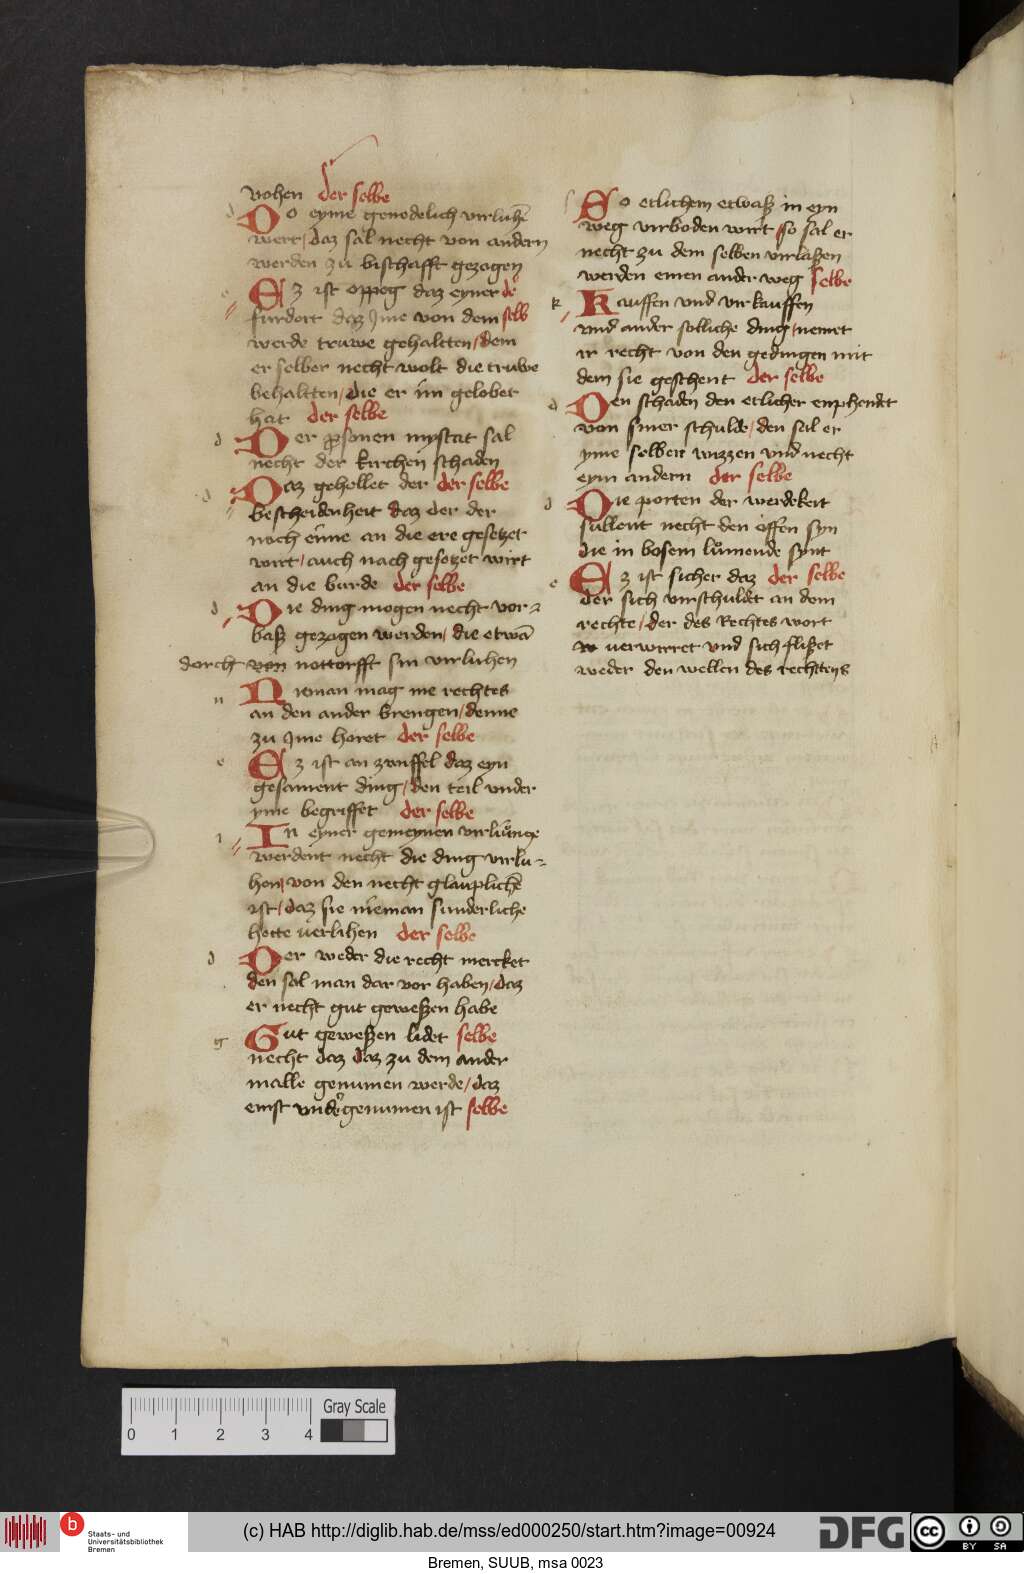 vohen der selbe
Do eyme genodelich virluhē
wert / daz sal necht von andern
werden zu bischafft gezogen
Ez ist oppeg daz eyner de
furdert daz Jme von dem selb
werde truwe gehaltten / dem
er selber necht wolt die truwe
behaltten / die er im gelobet
hat der selbe
Der psonen mystat sal
necht der kirchen schaden
Daz gehellet der der selbe
bescheidenheit daz der der
noch eine an die ere gesetzet
wirt / auch nach gesetzet wirt
an die burde der selbe
Die ding mogen necht vor
basz gezogen werden / die etwā
dorch von nottorfft sin virluhen
Nieman mag me rechtes
an den ander brengen / denne
zu Jme horet der selbe
Ez ist an zwiffel daz eyn
gesament ding / den teil vnder
yme begriffet der selbe
In eyner gemeynen virluunge
werdent necht die ding virlu
hen / von den necht glauplichē
ist / daz sie nieman sunderliche
hette uerlihen der selbe
Der weder die recht mercket
den sal man dar vor haben / daz
er necht gut geweszen habe
Gut geweszen lidet selbe
necht daz daz zu dem ander
malle genumen werde / daz
einst vnder genumen ist selbe
So etlichem etwasz in eyn
weg virboden wirt so sal er
necht zu dem selben virlaszen
werden einen ander weg selbe
Kauffen vnd virkauffen
vnd ander solliche ding / nemet
ir recht von den gedingen mit
dem sie geschent der selbe
Den schaden den etlicher enphendet
von siner schulde / den sal er
yme selben wizzen vnd necht
eym andern der selbe
Die porten der werdekeit
sullent necht den offen syn
die in bosem lumende synt
Ez ist sicher daz der selbe
der sich virschuldet an dem
rechte / der des Rechtes wort
uerwirret vnd sich fliszet
weder den wellen des rechttens
0 1 2 3 4
Gray Scale
b Staats- und
Universitätsbibliothek
Bremen
(c) HAB http://diglib.hab.de/mss/ed000250/start.htm?image=00924
DFG
cc BY SA
Bremen, SUUB, msa 0023